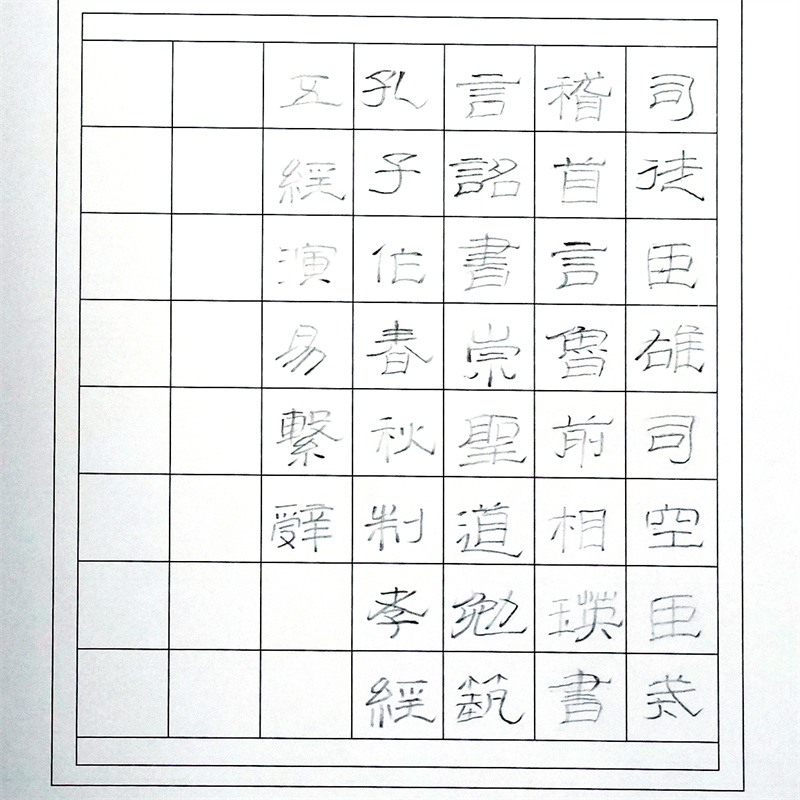 司徒臣雄司空臣戒
稽首言魯前相瑛書
言詔書崇聖道勉藝
孔子作春秋制孝經
五經演易繫辭